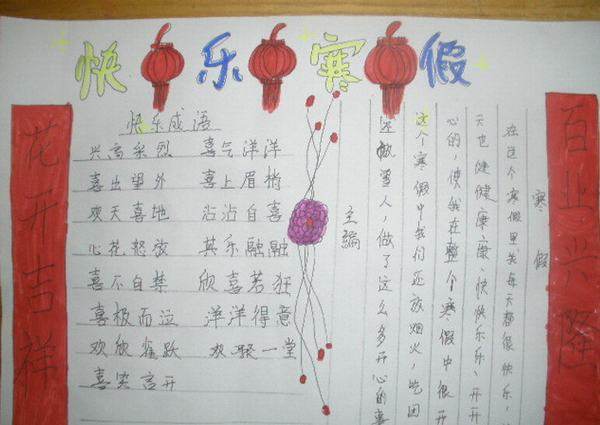 快乐寒假
花开吉祥
百业兴隆
快乐成语
兴高采烈 喜气洋洋
喜出望外 喜上眉梢
欢天喜地 沾沾自喜
心花怒放 其乐融融
喜不自禁 欣喜若狂
喜极而泣 洋洋得意
欢欣雀跃 欢聚一堂
喜笑言开
主编
寒假
在这个寒假里,我每天都很快乐,
天也健健康康、快快乐乐、开开
心的,使我在整个寒假中很开
这个寒假中我们还放烟火,吃团
还做雪人,做了这么多开心的事